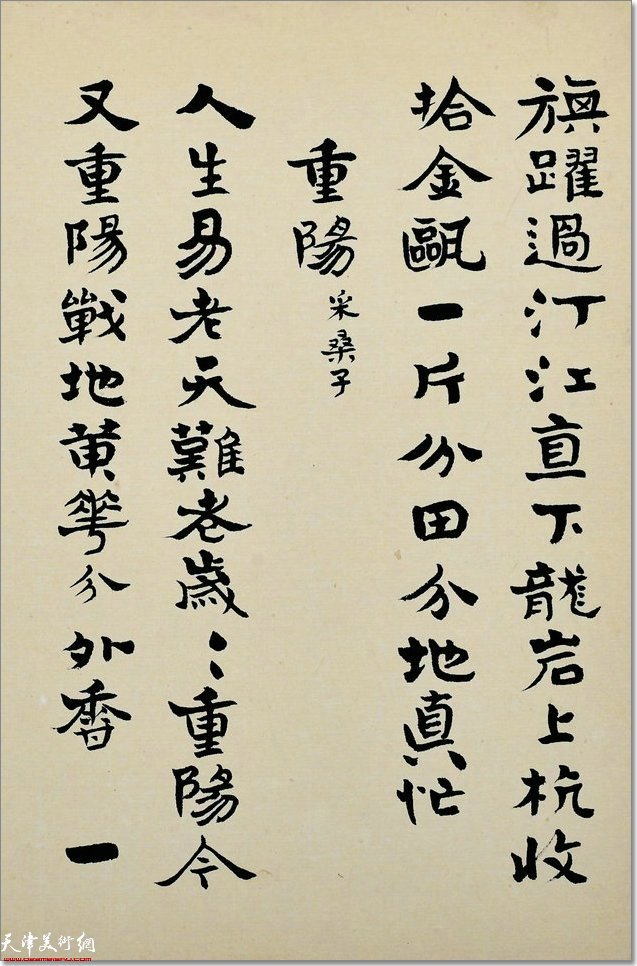 旗躍過汀江直下龍岩上杭收
拾金甌一片分田分地真忙
重陽 采桑子
人生易老天難老歲〻重陽今
又重陽戰地黄花分外香 一
天津美術網